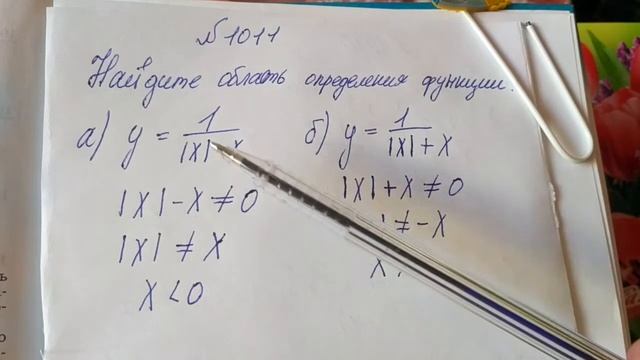 №1011
Найдите область определения функции.
а) y = 1/|x| - x
б) y = 1/|x| + x
|x| - x ≠ 0
|x| ≠ x
x < 0
|x| + x ≠ 0
≠ -x
x